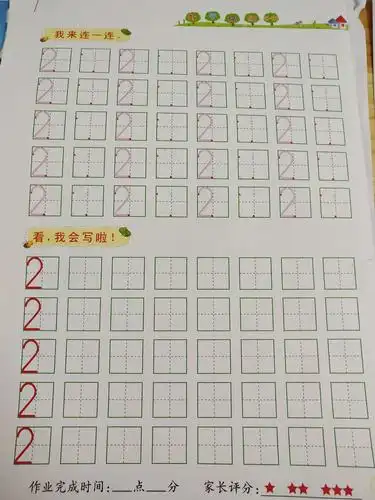 我来连一连。
2 2 2 2
2 2 2 2
2 2 2 2
2 2 2 2
2 2 2 2
看，我会写啦！
2
2
2
2
2
作业完成时间：___点___分 家长评分：★ ★★ ★★★